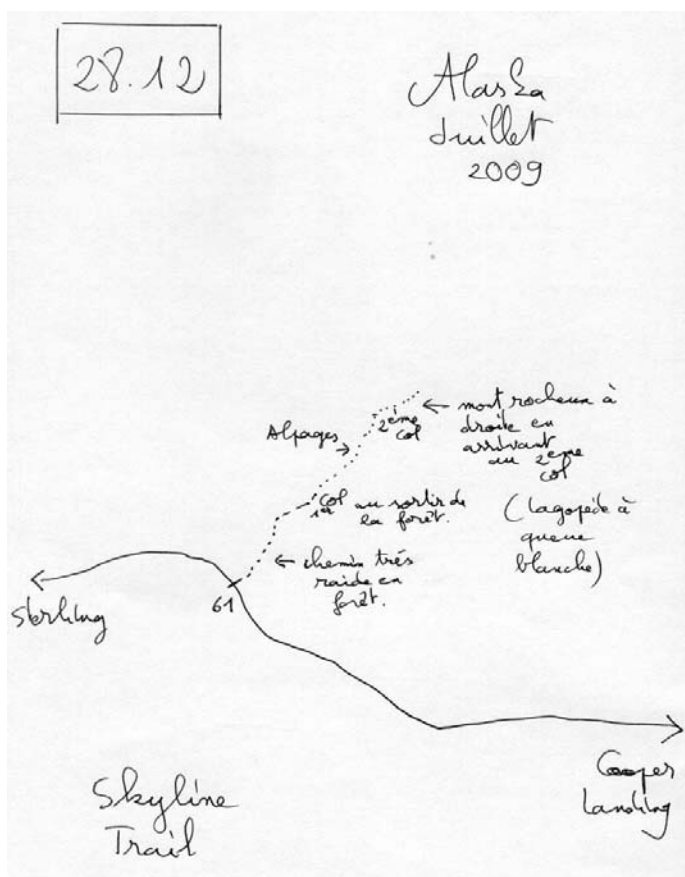 28.12
Alaska
Juillet
2009
← mont rocheux à
droite en
arrivant
au 2ème
col
2ème
col
Alpages
1er col au sortir de
la forêt.
(lagopède à
queue
blanche)
← chemin très
raide en
forêt.
61
Sterling
Cooper
Landing
Skyline
Trail